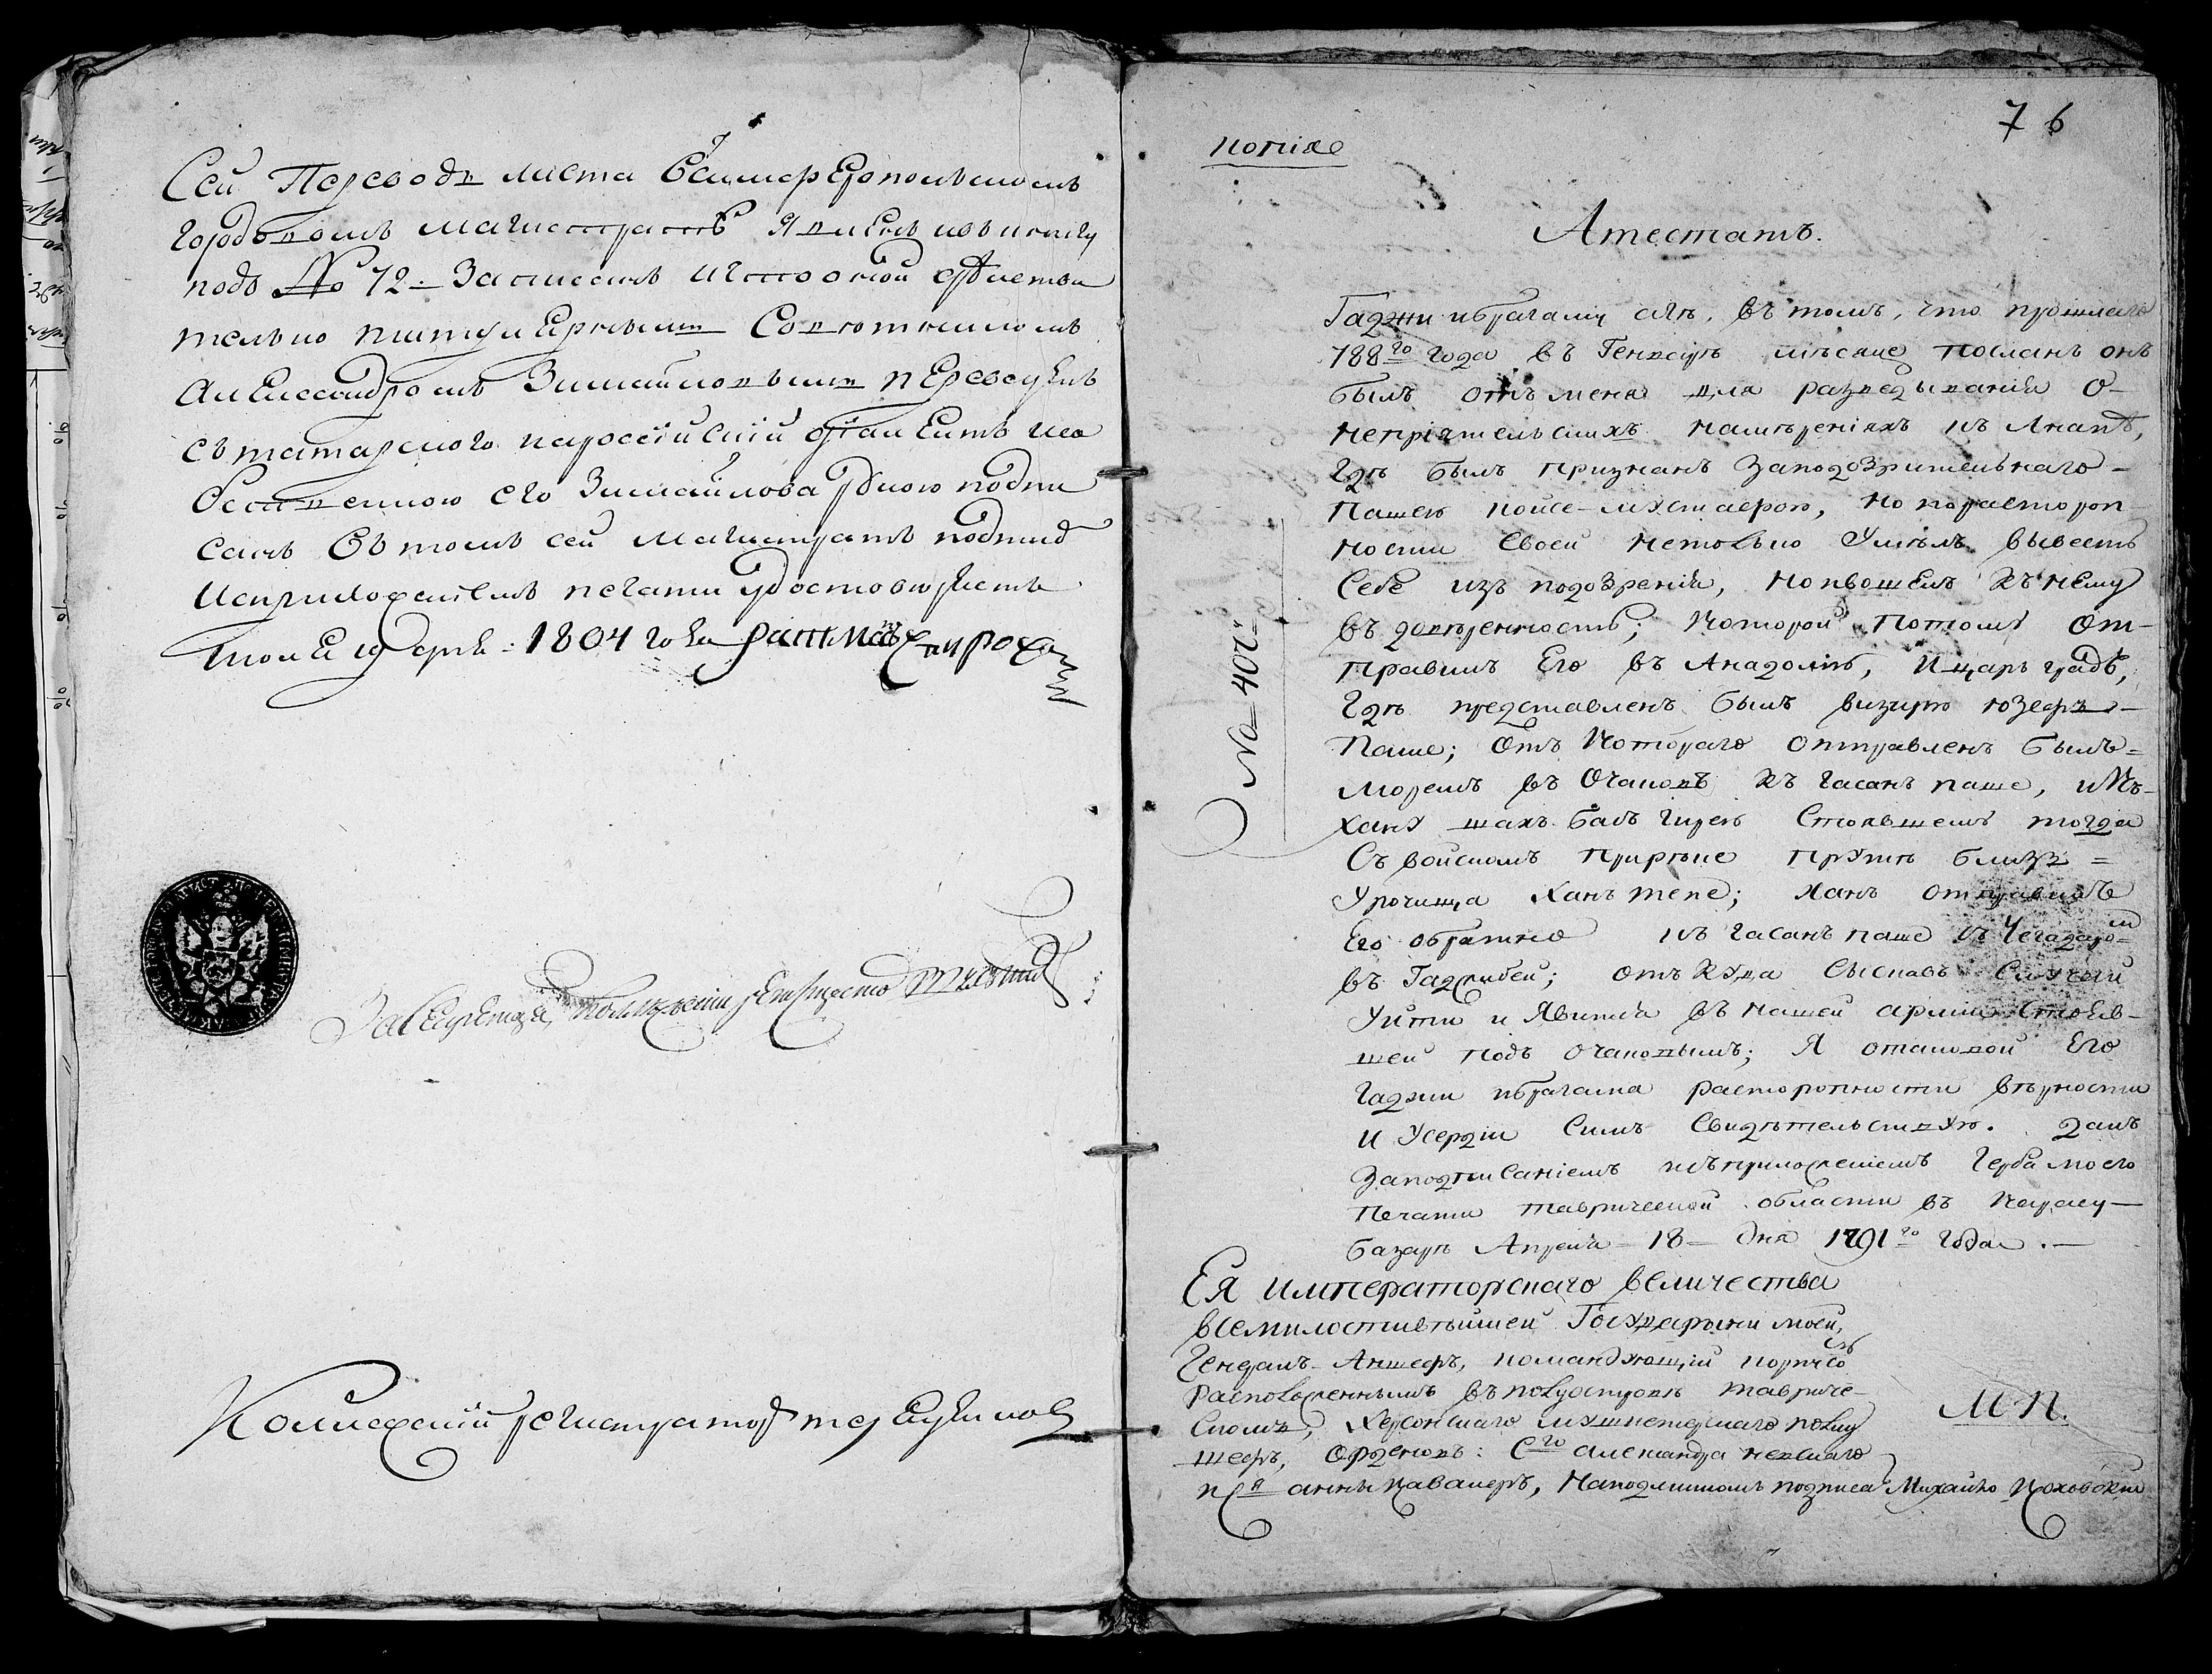 Сей Переводъ листа Всимферопольскомъ
городовомъ магистратѣ явленъ ивъ книгу
подъ № 72. Записанъ
тельно титулярнымъ Советникомъ
Александромъ Измайловымъ переведенъ
сътатарского нароссійскій
его Измайлова рукою подпи
санъ Вътомъ сей магистратъ подпис
исприложениемъ печати удостоверяетъ
1804 года ратманъ
Засекретаря,
Колежскій регистраторъ
76
копія
Атестатъ.
№ 402
Гаджи ибрагаму агѣ, въ томъ, что прошлаго
788го года въ Генварѣ мѣсяце посланъ онъ
былъ отъ меня для разведыванія о
непріятельскихъ намѣреніяхъ къ Анапѣ,
гдѣ былъ признанъ Заподозрительнаго
пашею, но порастороп
ности своей нетолько Умѣлъ вывесть
Себе изъ подозренія, но ивошелъ къ нему
въ довѣренность; которой Потомъ от
правилъ Его въ Анадоліѣ, И царь градъ,
гдѣ представленъ былъ визирю юзефъ
Паше; отъ Котораго отправленъ былъ
моремъ въ Очаковъ къ гасанъ паше, икъ
хану шахъ басъ гирею Стоявшемъ тогда
Съ войскомъ Прирѣке Прутѣ близъ
Урочища Ханъ тепе; ханъ отправилъ
Его обратно къ гасанъ паше
въ Гаджибей; отъ куда Сыскавъ Случай
Уйти и Явился въ нашей арміи Стояв
шей подъ очаковымъ; Я отаковой Его
Гаджи ибрагама расторопности вѣрности
и Усердіи Симъ Свидѣтельствую. данъ
Заподписаніемъ исъприложеніемъ Герба моего
печати таврической области въ Карасу
базарѣ Апреля 18 дня 1791го года.
Ея императорскаго величества
всемилостивѣйшей Государыни моей,
Генералъ Аншефъ, командующій корпусомъ
расположеннымъ въ полуостровѣ тавриче
скомъ, Херсонскаго полку
шефъ, Орденовъ: Сго александра невскаго
и Ся анны кавалеръ, Наподлинномъ подписа Михайло Каховскій
МП.